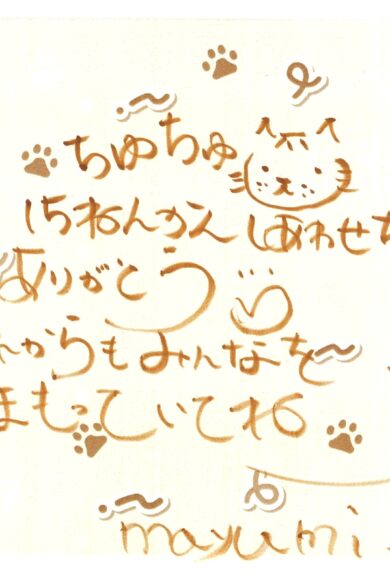 ちゅちゅ
1ちねんかん しあわせを
ありがとう
れからもみんなを
まもっていてね
mayumi